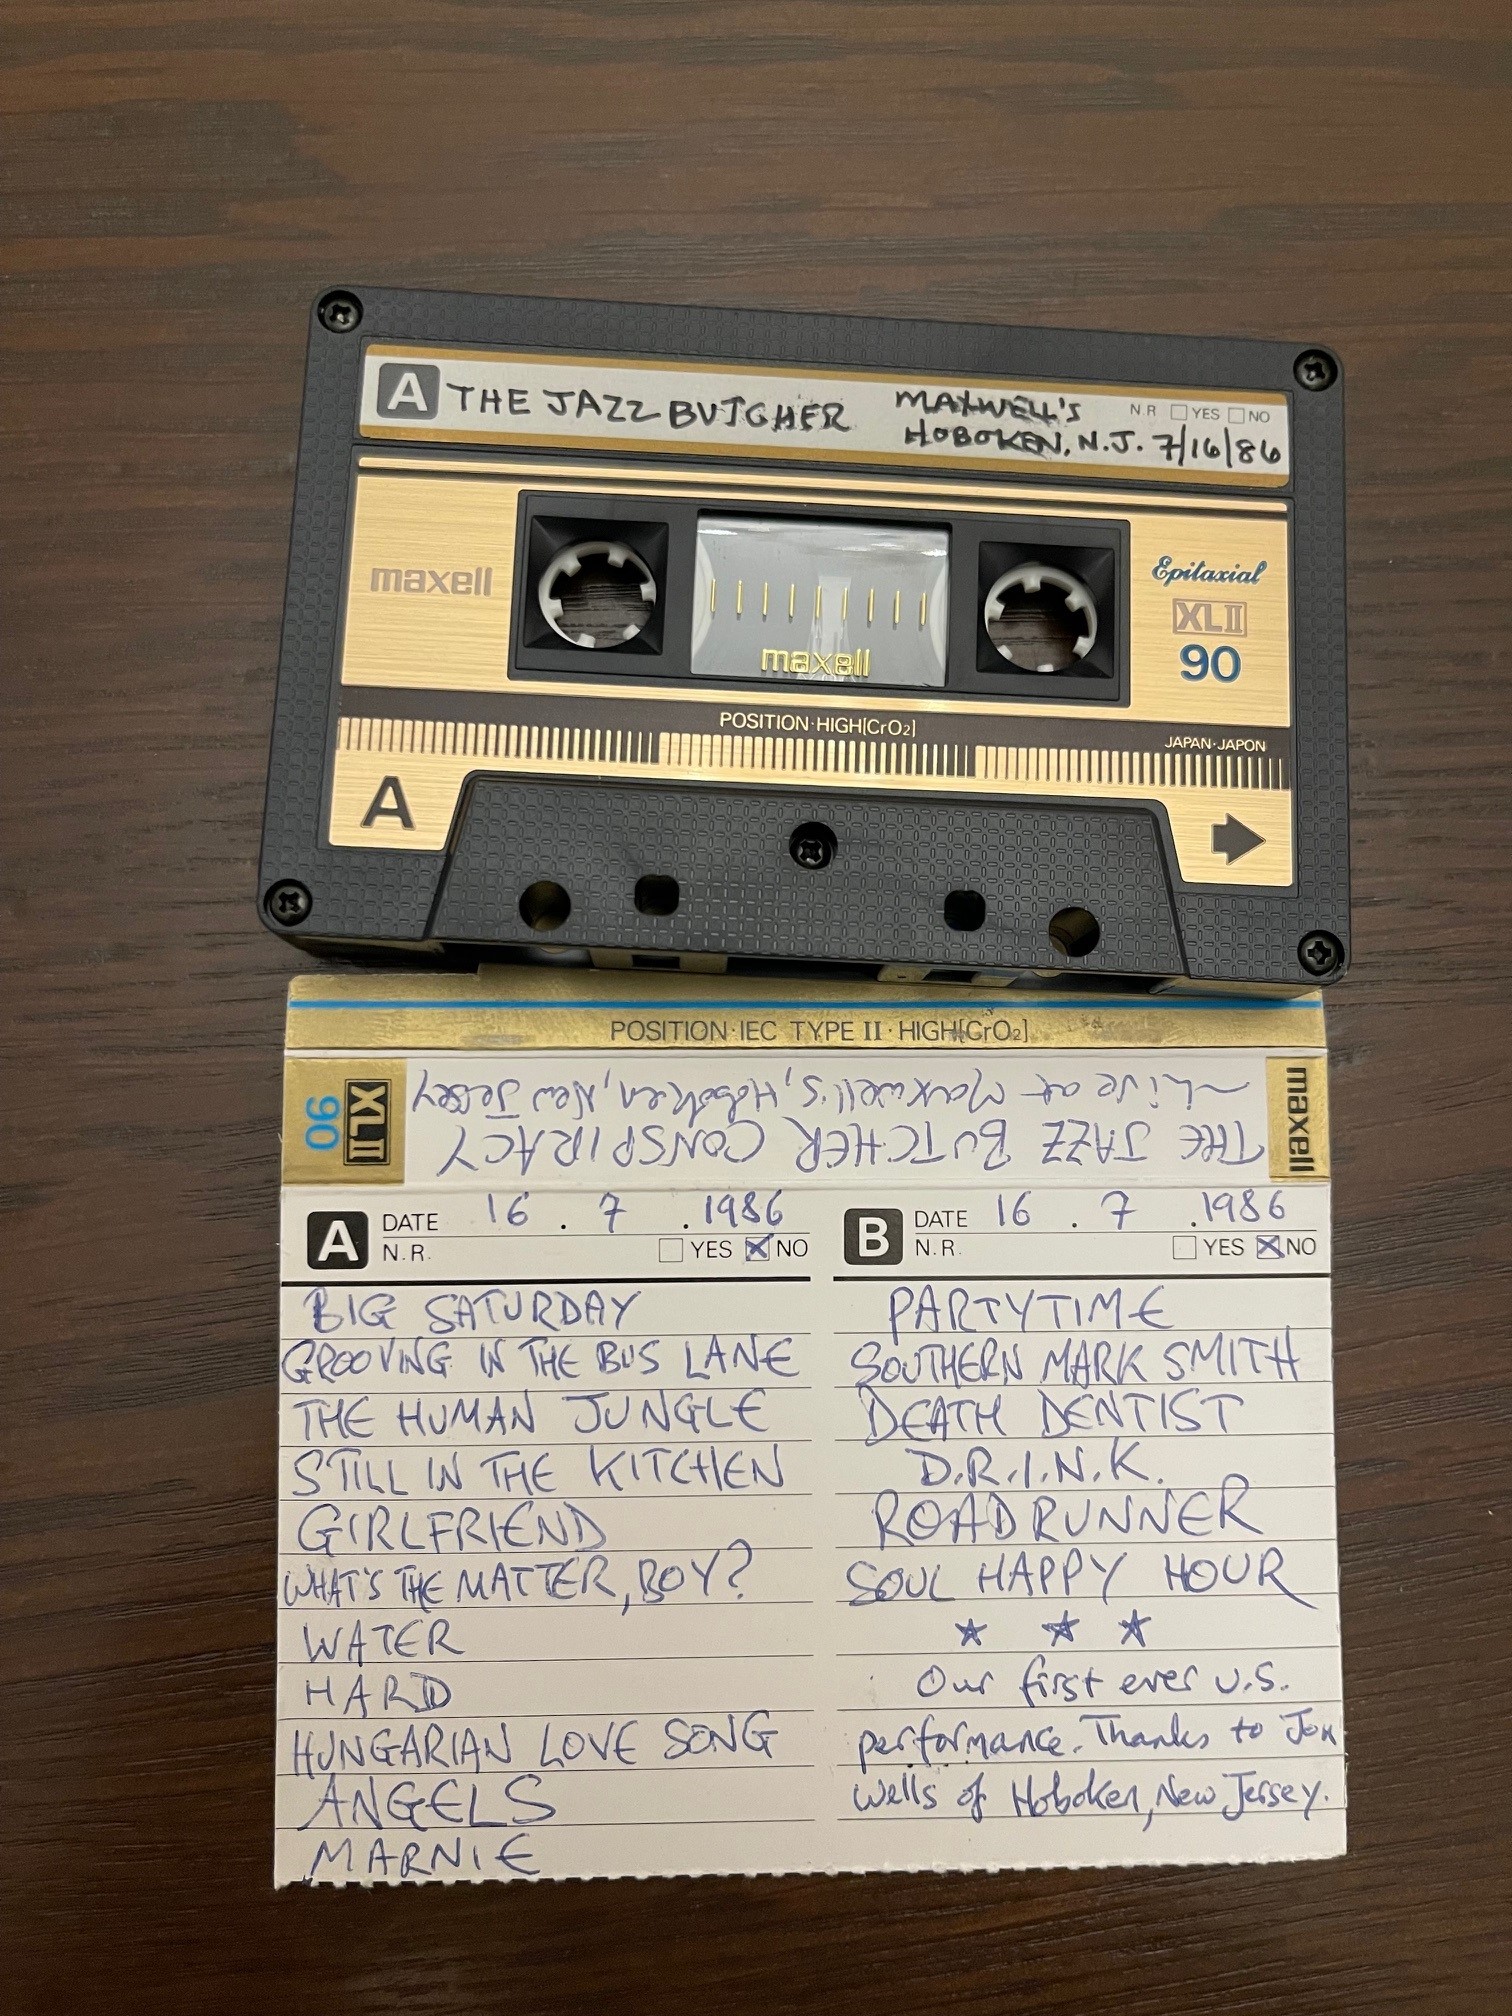 A THE JAZZ BUTCHER MAXWELL'S N.R YES NO
HOBOKEN, N.J. 7/16/86
maxell
Epitaxial
XLII
90
maxell
POSITION·HIGH[CrO2]
JAPAN·JAPON
A
POSITION·IEC TYPE II·HIGH[CrO2]
maxell
THE JAZZ BUTCHER CONSPIRACY
~Live at Maxwell's, Hoboken, New Jersey
XLII
90
A DATE 16 . 7 . 1986
N.R. YES NO
BIG SATURDAY
GROOVING IN THE BUS LANE
THE HUMAN JUNGLE
STILL IN THE KITCHEN
GIRLFRIEND
WHAT'S THE MATTER, BOY?
WATER
HARD
HUNGARIAN LOVE SONG
ANGELS
MARNIE
B DATE 16 . 7 . 1986
N.R. YES NO
PARTYTIME
SOUTHERN MARK SMITH
DEATH DENTIST
D.R.I.N.K.
ROADRUNNER
SOUL HAPPY HOUR
★ ★ ★
Our first ever U.S.
performance. Thanks to Jon
Wells of Hoboken, New Jersey.